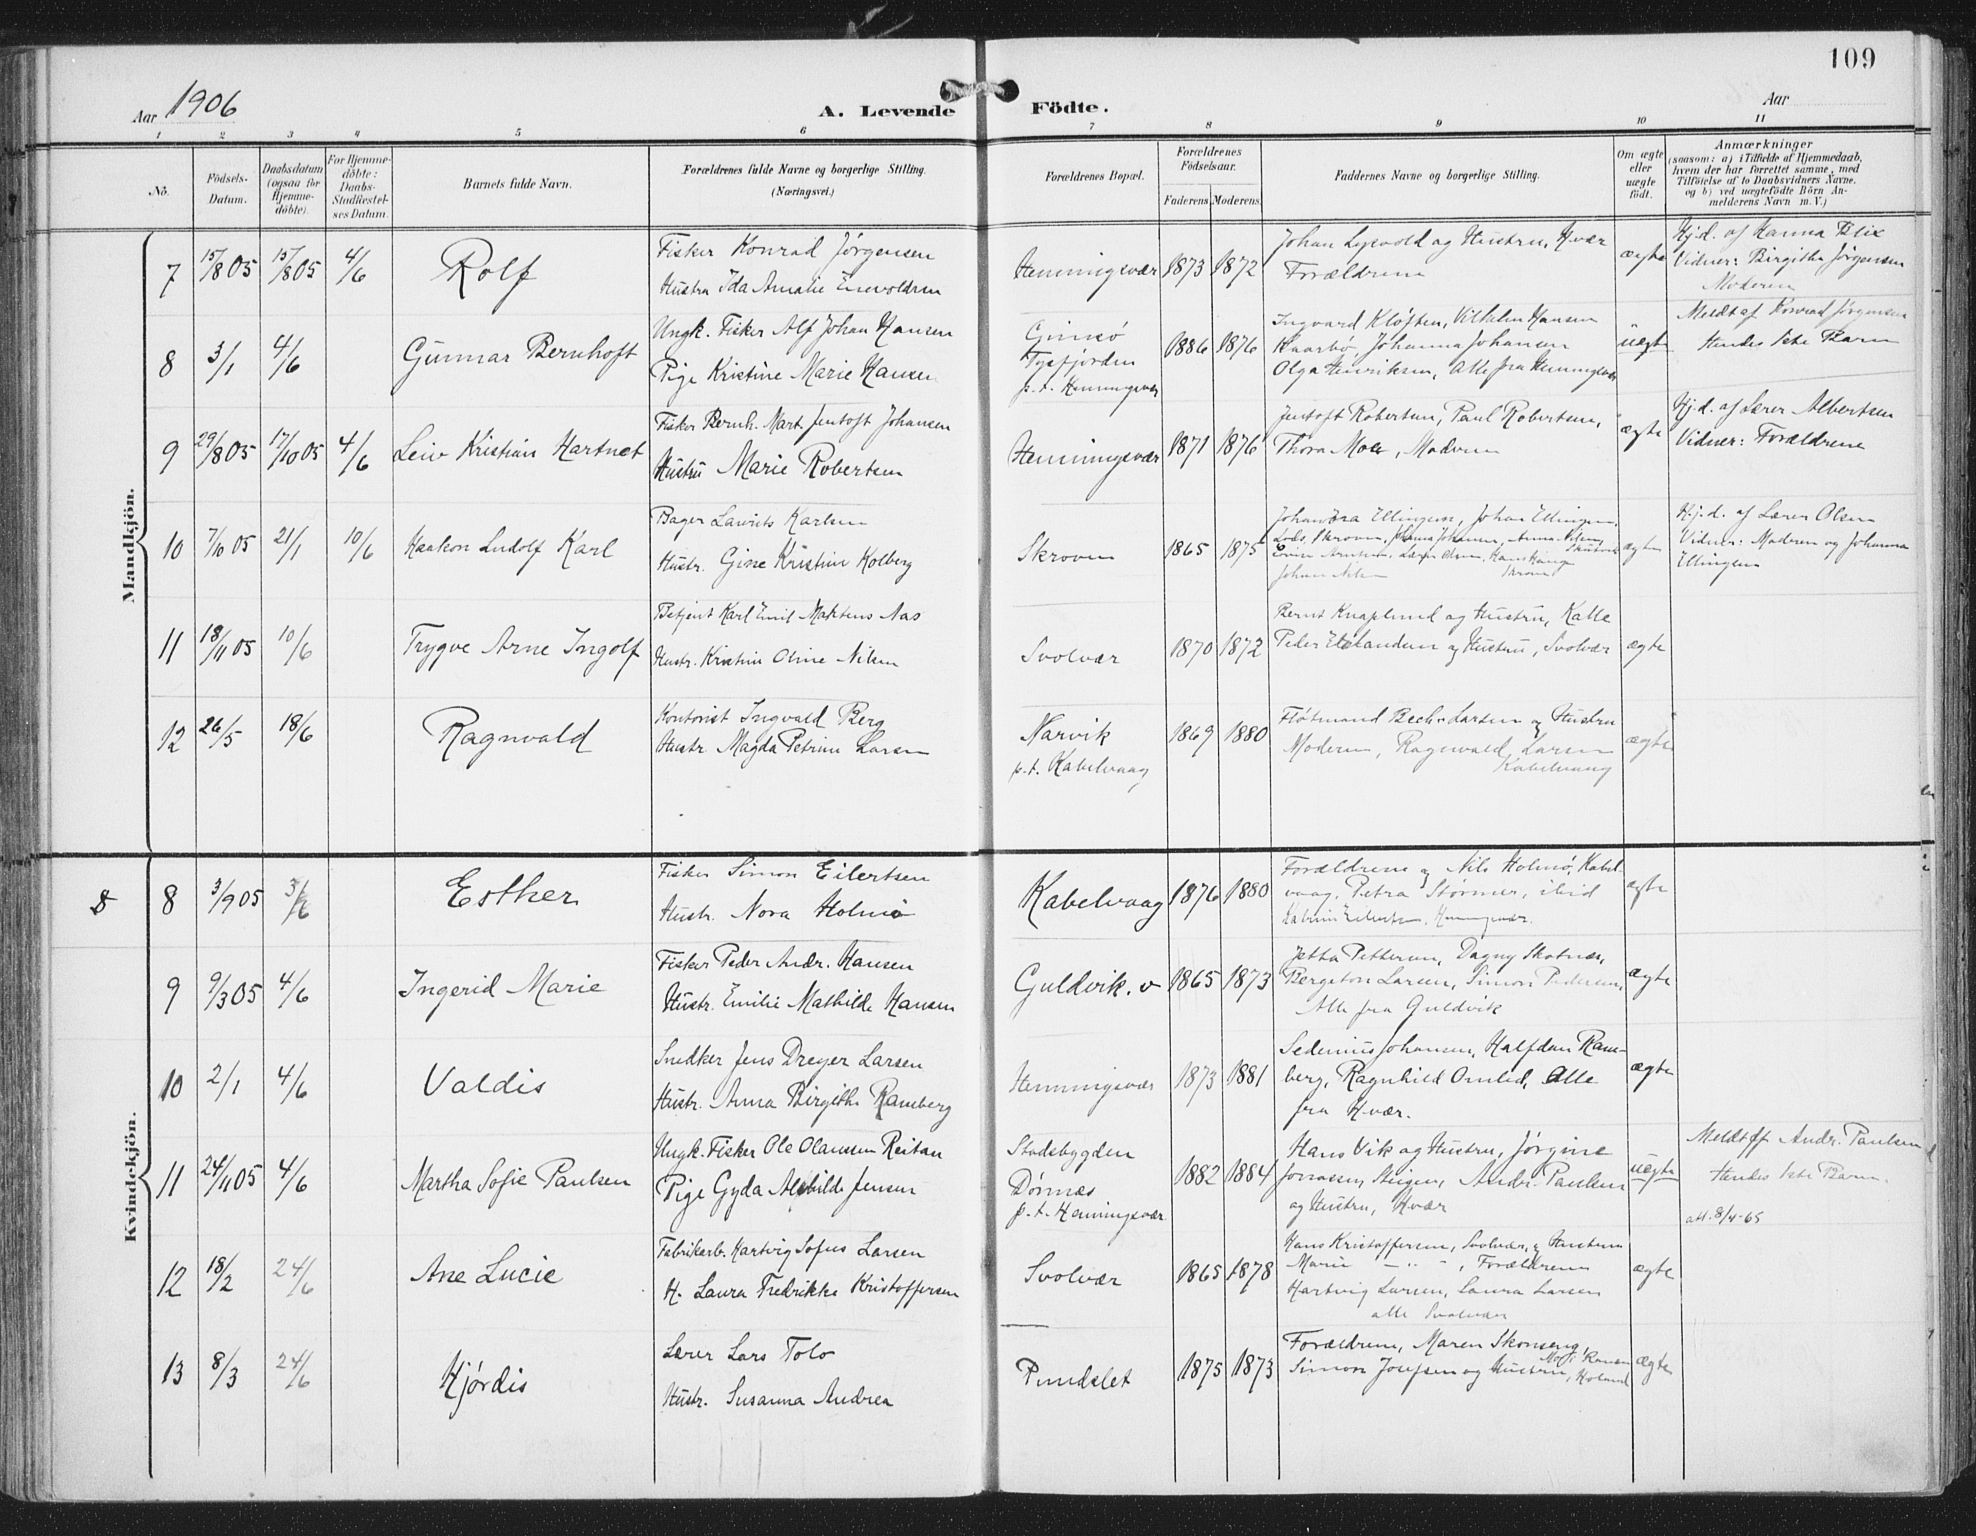 109
Aar 1906
A. Levende Födte.
Aar
1 2 3 4 5 6 7 8 9 10 11
No.
Födsels-Datum.
Daabsdatum (ogsaa for Hjemme-döbte).
For Hjemme-döbte: Daabs-Stadfæstel-ses Datum.
Barnets fulde Navn.
Forældrenes fulde Navne og borgerlige Stilling. (Næringsvei.)
Forældrenes Bopæl.
Forældrenes Födselsaar.
Faderens. Moderens.
Faddernes Navne og borgerlige Stilling.
Om ægte eller uægte födt.
Anmærkninger
(saasom: a) i Tilfælde af Hjemmedaab, hvem der har forrettet samme, med Tilföielse af to Daabsvidners Navne, og b) ved uægtefödte Börn An-melderens Navn m. V.)
Mandkjön.
7 15/8 05 15/8 05 4/6 Rolf
Fisker Konrad Jørgensen
Hustru Ida Amalie Enevoldsen
Henningsvær 1873 1872
Johan Lysvold og Hustru, H.vær
Forældrene
ægte
Hj.d. af Hanna Blix
Vidner: Birgitha Jørgensen
Moderen
8 3/1 4/6 Gunnar Bernhoft
Ungk. Fisker Alf Johan Hansen
Pige Kristine Marie Hansen
Gimsø
p.t. Henningsvær
1886 1876
Ingvard Kløften, Vilhelm Hansen
Kaarbø, Johanna Johansen
Olga Henriksen, Alle fra Henningsvær
uægte
Meldt af Konrad Jørgensen
Hendes 1ste Barn
9 29/8 05 17/10 05 4/6 Leiv Kristian Hartnet
Fisker Bernh. Mart. Jentoft Johansen
Hustru Marie Robertsen
Henningsvær 1871 1876
Jentoft Robertsen, Paul Robertsen,
Thora Moe, Moderen
ægte
Hj.d. af Lærer Albertsen
Vidner: Forældrene
10 7/10 05 21/1 10/6 Haakon Ludolf Karl
Bager Laurits Karlsen
Hustr. Gine Kristine Kolberg
Skroven 1865 1875
Ellingsen, Johan Ellingsen,
Lods, Skroven, Johanna Johansen, Anna Nilsen
Arntsen, Lærer Olsen,
Johan Nilsen
ægte
Hj.d. af Lærer Olsen
Vidner: Moderen og Johanna
Ellingsen
11 18/11 05 10/6 Trygve Arne Ingolf
Betjent Karl Emil Martens Nas
Hustr. Kristine Oline Nilsen
Svolvær 1870 1872
Bernt Knaplund og Hustru, Kalle
Peder og Hustru, Svolvær
ægte
12 26/5 18/6 Ragnvald
Kontorist Ingvald Berg
Hustr. Magda Petrine Larsen
Narvik
p.t. Kabelvaag
1869 1880
Fløtmand Bech-Larsen og Hustru
Moderen, Ragnvald Larsen
Kabelvaag
ægte
Kvindekjön.
8 8 3/9 05 3/6 Esther
Fisker Simon Eilertsen
Hustr. Nora Holmø
Kabelvaag 1876 1880
Forældrene og Nils Holmø, Kabel-
vaag, Petra Størmer, ibid
Katrine Eilertsen, Henningsvær.
ægte
9 9/3 05 4/6 Ingerid Marie
Fisker Peder Andr. Hansen
Hustr. Emilie Mathilde Hansen
Guldvik. v 1865 1873
Jetta Pettersen, Dagny Skotnes,
Bergeton Larsen, Simon Pedersen,
Alle fra Guldvik
ægte
10 2/1 4/6 Valdis
Snedker Jens Dreyer Larsen
Hustr. Anna Birgithe Ramberg
Henningsvær 1873 1881
Sedenius Johansen, Halfdan Ram-
berg, Ragnhild Omlid, Alle
fra H.vær.
ægte
11 24/11 05 4/6 Martha Sofie Paulsen
Ungk. Fisker Ole Olaussen Reitan
Pige Gyda Alvhilde Jensen
Stadsbygden
Dønnæs
p.t. Henningsvær
1882 1884
Hans Vik og Hustru, Jørgine
Jonassen, Steigen, Andr. Paulsen
og Hustru, H.vær
uægte
Meldt af Andr. Paulsen
Hendes 1ste Barn.
att. 8/4-65
12 18/2 24/6 Ane Lucie
Fabrikarb. Hartvig Sofus Larsen
H. Laura Fredrikke Kristoffersen
Svolvær 1865 1878
Hans Kristoffersen, Svolvær, og Hustru
Marie — „ — , Forældrene
Hartvig Larsen, Laura Larsen
alle Svolvær
ægte
13 8/3 24/6 Hjørdis
Lærer Lars Tolo
Hustr. Susanna Andrea
Pundslet 1875 1873
Forældrene, Maren Skonseng,
Simon Josefsen og Hustru,
ægte